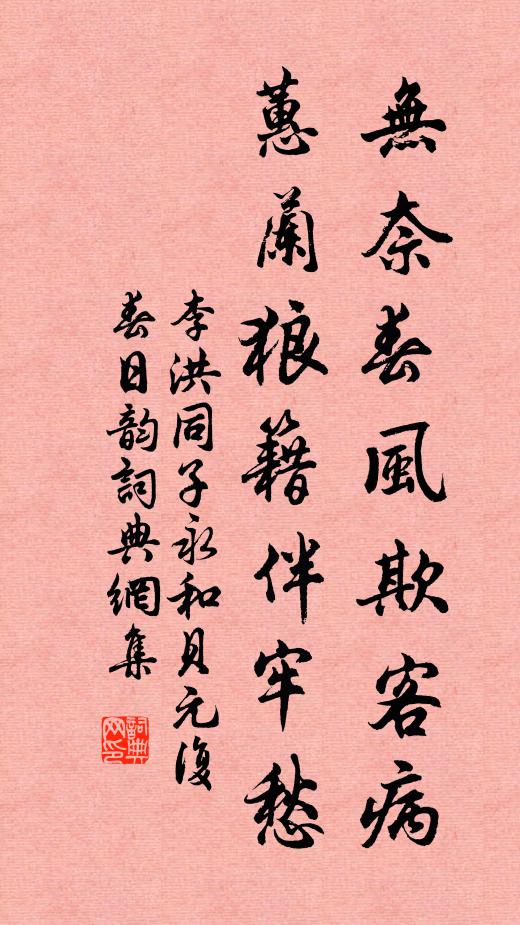 無奈春風欺客病
蕙蘭狼籍伴牢愁
李洪同子永和貝元復
春日韵詞典網集
詞典
网印